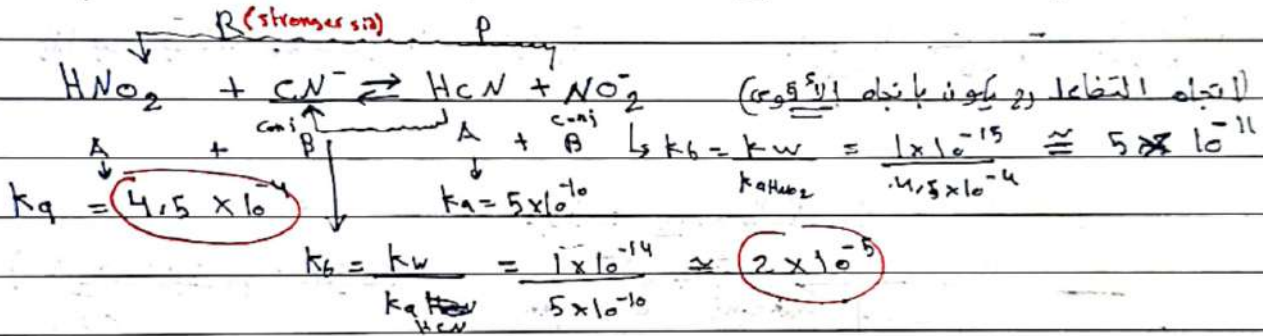 R (stronger sid) P
HNO₂ + CN⁻ ⇄ HCN + NO₂⁻ (اتجاه التفاعل رح يكون باتجاه الأقوى)
conj conj
A + B A + B ↳ k6 = kw / kaHNO2 = 1x10⁻¹⁵ / 4,5x10⁻⁴ ≅ 5x 10⁻¹¹
ka = 4,5 x10⁻⁴ ka = 5x10⁻¹⁰
k6 = kw / ka HCN = 1x10⁻¹⁴ / 5x10⁻¹⁰ ≈ 2x10⁻⁵